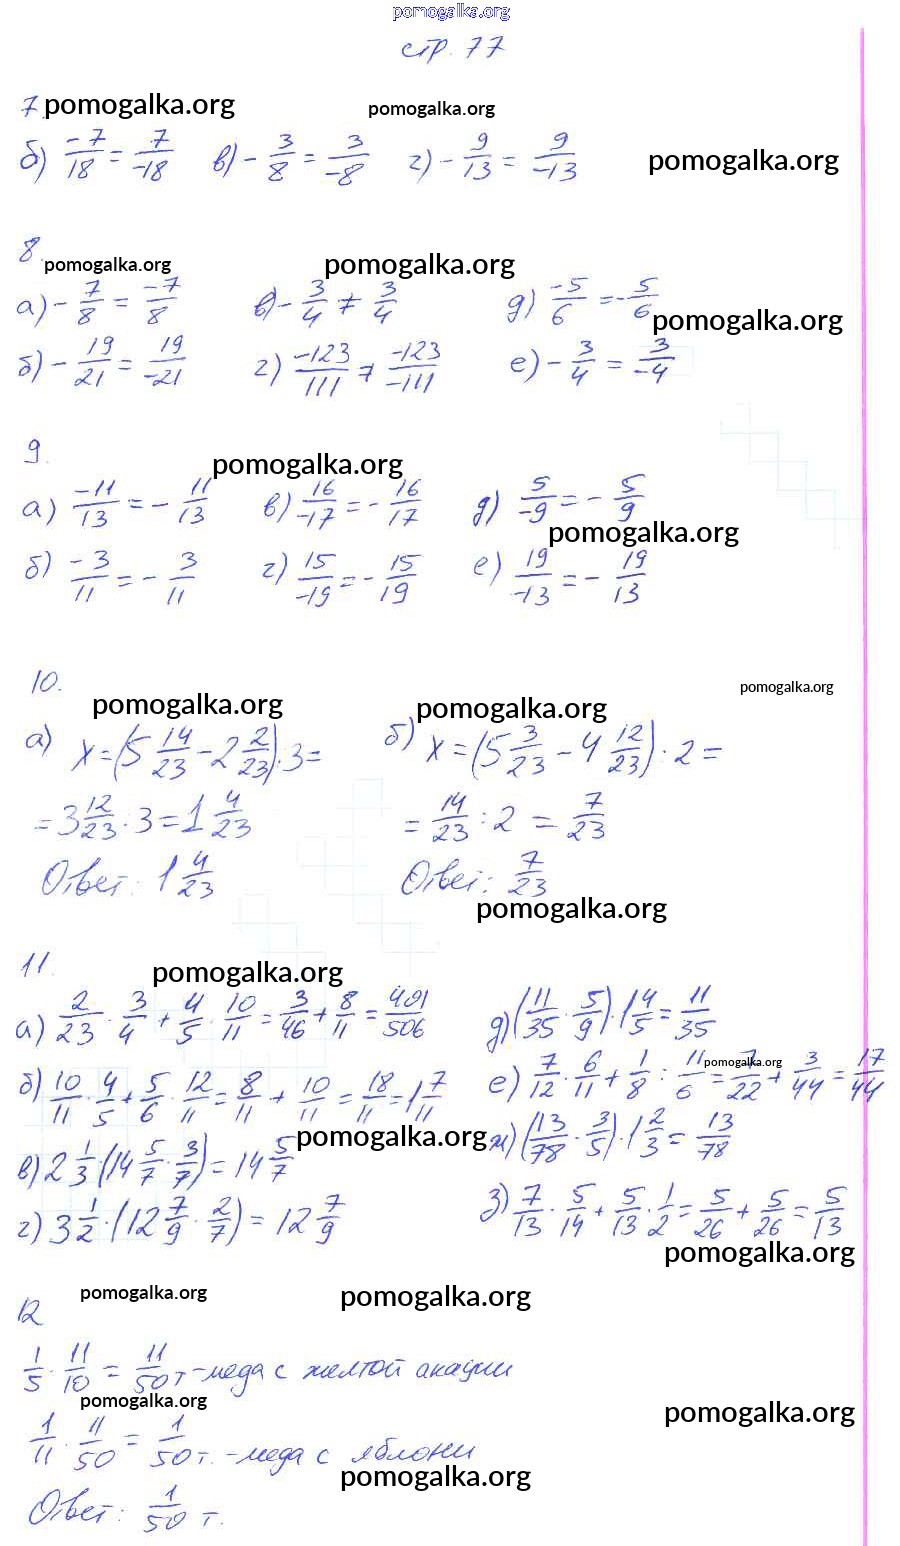 pomogalka.org
стр. 77
7. pomogalka.org pomogalka.org
б) -7/18 = 7/-18 в) - 3/8 = 3/-8 г) - 9/13 = 9/-13 pomogalka.org
8. pomogalka.org pomogalka.org
а) - 7/8 = -7/8 в) - 3/4 ≠ 3/4 д) -5/6 = - 5/6
pomogalka.org
б) - 19/21 = 19/-21 г) -123/111 ≠ -123/-111 е) - 3/4 = 3/-4
9. pomogalka.org
а) -11/13 = - 11/13 в) 16/-17 = - 16/17 д) 5/-9 = - 5/9
pomogalka.org
б) -3/11 = - 3/11 г) 15/-19 = - 15/19 е) 19/-13 = - 19/13
10. pomogalka.org pomogalka.org pomogalka.org
а) x = (5 14/23 - 2 2/23) : 3 = б) x = (5 3/23 - 4 12/23) : 2 =
= 3 12/23 : 3 = 1 4/23 = 14/23 : 2 = 7/23
Ответ: 1 4/23 Ответ: 7/23
pomogalka.org
11. pomogalka.org
а) 2/23 · 3/4 + 4/5 · 10/11 = 3/46 + 8/11 = 401/506 д) (11/35 · 5/9) · 1 4/5 = 11/35
pomogalka.org
б) 10/11 · 4/5 + 5/6 · 12/11 = 8/11 + 10/11 = 18/11 = 1 7/11 е) 7/12 · 6/11 + 1/8 : 11/6 = 7/22 + 3/44 = 17/44
pomogalka.org ж) (13/78 · 3/5) · 1 2/3 = 13/78
в) 2 1/3 · (14 5/7 · 3/7) = 14 5/7
г) 3 1/2 · (12 7/9 · 2/7) = 12 7/9 з) 7/13 · 5/14 + 5/13 · 1/2 = 5/26 + 5/26 = 5/13
pomogalka.org
12 pomogalka.org pomogalka.org
1/5 · 11/10 = 11/50 т - меда с желтой акации
pomogalka.org pomogalka.org
1/11 · 11/50 = 1/50 т. - меда с яблони
pomogalka.org
Ответ: 1/50 т.